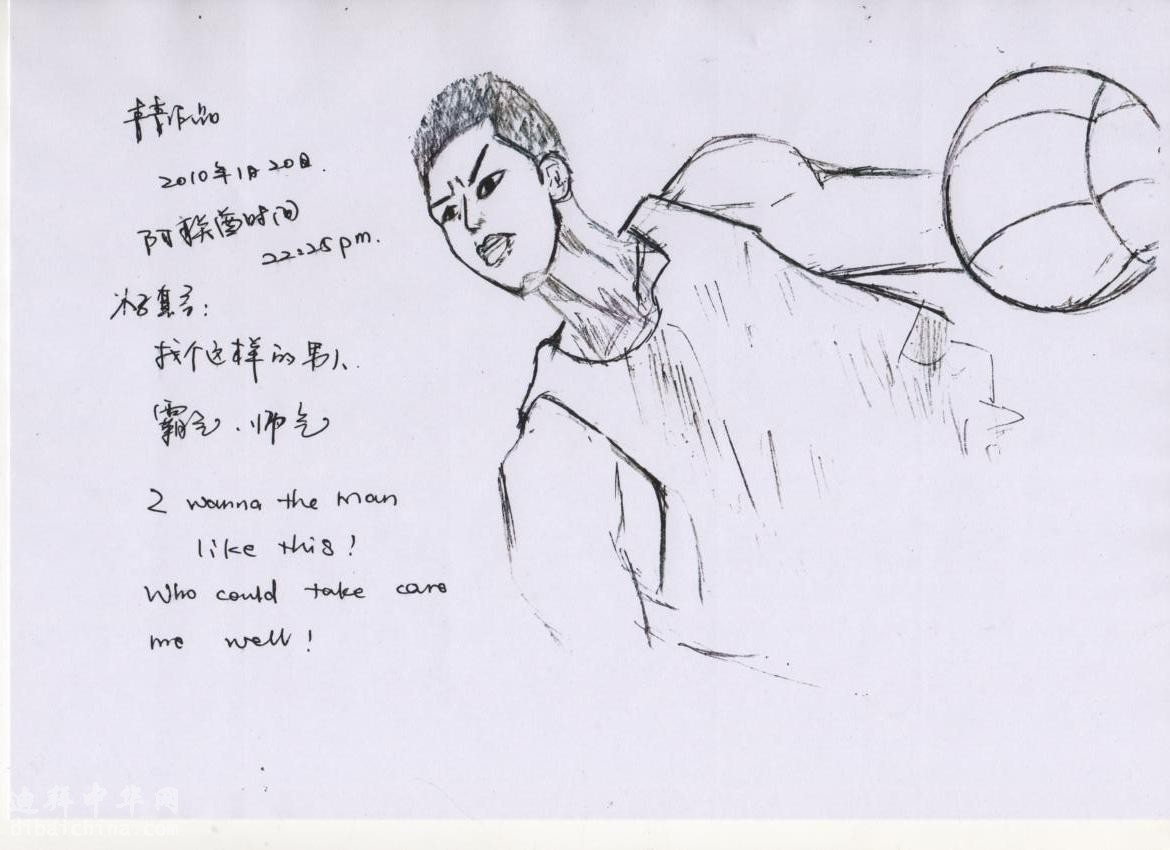 青青作品
2010年1月20日.
阿联酋时间
22:25pm.
找个这样的男人.
霸气.帅气
I wanna the man
like this!
Who could take care
me well!
迪拜中华网
dibaichina.com